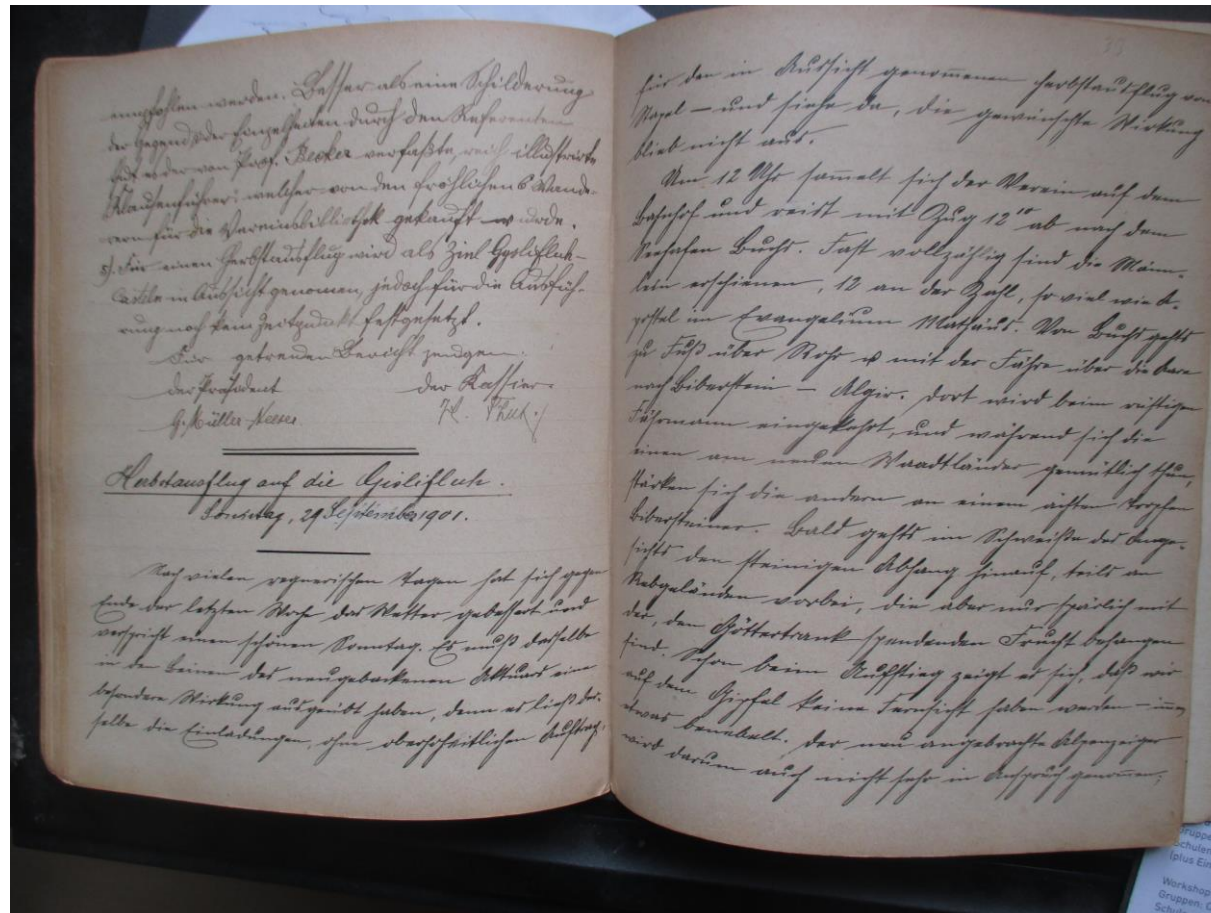 empfohlen werden. Besser als eine Schilderung
der Gegend oder Einzelheiten durch den Referenten
tut es der von Prof. Becker verfaßte, reich illustrirte
Klausenführer, welcher von den fröhlichen 6 Wande-
rern für die Vereinsbibliothek gekauft wurde.
8). Für einen Herbstausflug wird als Ziel Gyslifluh-
Casteln in Aussicht genomen, jedoch für die Ausfüh-
rung noch kein Zeitpunkt festgesetzt.
Für getreuen Bericht zeugen:
der Präsident der Kassier:
G. Müller
Herbstausflug auf die Gislifluh.
Sonntag, 29 September 1901.
Nach vielen regnerischen Tagen hat sich gegen
Ende der letzten Woche das Wetter gebessert und
verspricht einen schönen Sonntag. Es muß dasselbe
in den Beinen des neugebackenen Aktuars eine
besondere Wirkung ausgeübt haben, denn es ließ der-
selbe die Einladungen, ohne oberhoheitlichen Auftrag,
für den in Aussicht genommenen Herbstausflug vom
Stapel – und siehe da, die gewünschte Wirkung
blieb nicht aus.
Um 12 Uhr sammelt sich der Verein auf dem
Bahnhof und reist mit Zug 12 10 ab nach dem
Seehafen Buchs. Fast vollzählig sind die Männ-
lein erschienen, 12 an der Zahl, so viel wie A-
postel im Evangelium Mathäus. Von Buchs gehts
zu Fuß über Rohr u mit der Fähre über die Aare
nach Biberstein – Algir. Dort wird beim rüstigen
Fährmann eingekehrt, und während sich die
einen am neuen Waadtländer gemütlich thun,
stärken sich die andern an einem ächten Tropfen
Bibersteiner. Bald gehts im Schweiße des Ange-
sichts den steinigen Abhang hinauf, teils an
Rebgeländen vorbei, die aber nur spärlich mit
der, den Göttertrank spendenden Frucht behangen
sind. Schon beim Aufstieg zeigt es sich, daß wir
auf dem Gipfel keine Fernsicht haben werden –
etwas benebelt. Der neu angebrachte Alpenzeiger
wird darum auch nicht sehr in Anspruch genommen;